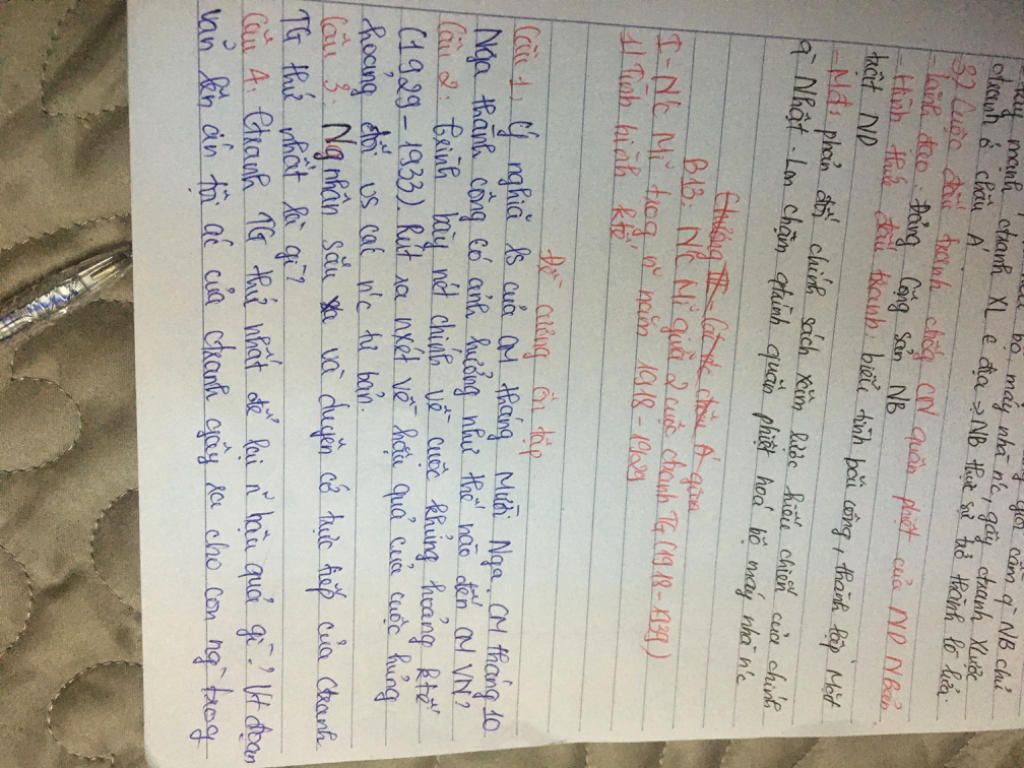 bộ máy nhà n'c, gây chanh Xước
chanh ở châu Á
3) Cuộc đấu tranh chống CN quân phiệt của ND NBản
- Lãnh đạo: Đảng Cộng sản NB
- Hình thức đấu tranh: biểu tình bãi công, thành lập Mặt
trận ND
- Nd: phản đối chính sách xâm lược hiếu chiến của chính
q` Nhật - Lm chậm quá trình quân phiệt hoá bộ máy nhà n'c
B18: N'c Mĩ giữa 2 cuộc chanh TG (1918-1939)
I - N'c Mĩ trog n~ năm 1918-1929
1) Tình hình ktế
Đề cương ôn tập
Câu 1, Ý nghĩa ls của CM tháng Mười Nga. CM tháng 10
Nga thành công có ảnh hưởng như thế nào đến CM VN?
Câu 2: trình bày nét chính về cuộc khủng hoảng ktế
(1929-1933). Rút ra nxét về hậu quả của cuộc khủng
hoảng đối vs các n'c tư bản.
Câu 3: Ng nhân sâu xa và duyên cớ trực tiếp của chanh
TG thứ nhất là gì?
Câu 4. Chanh TG thứ nhất để lại n~ hậu quả gì? Vt đoạn
văn lên án tội ác của chanh gây ra cho con ng` trong